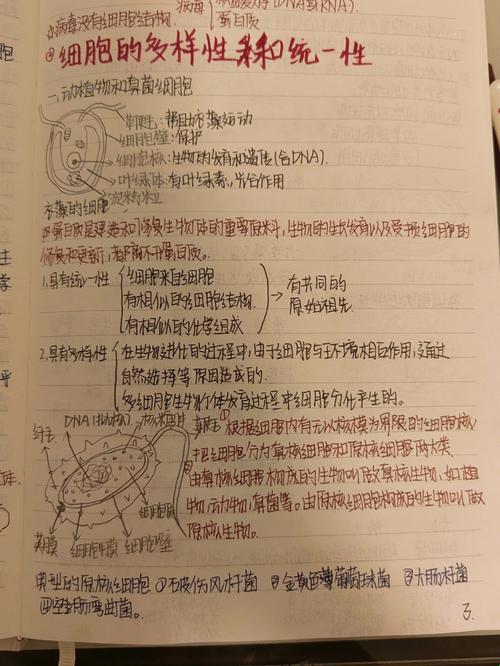 病毒 核酸(DNA或RNA).
蛋白质
①病毒没有细胞结构
④细胞的多样性和统一性
一.动植物和真菌细胞
鞭毛:帮助衣藻运动
细胞壁:保护
细胞核:生物的发育和遗传(含DNA).
叶绿体:有叶绿素,光合作用
淀粉粒
衣藻的细胞
蛋白质是建造和修复生物体的重要原料,生物的生长发育以及受损细胞的
修复和更新,都离不开蛋白质。
1.具有统一性
细胞来自细胞
有相似的细胞结构.
有相似的化学组成
有共同的
原始祖先.
2.具有多样性
在生物进化的过程中,由于细胞与环境相互作用,通过
自然选择等原因造成的.
多细胞生物个体发育过程中细胞分化产生的。
DNA(拟核) 核糖体 鞭毛
纤毛
荚膜 细胞膜 细胞壁
细胞质
①根据细胞内有无以核膜为界限的细胞核,
把细胞分为真核细胞和原核细胞两大类.
由真核细胞构成的生物叫做真核生物,如植
物,动物,真菌等。由原核细胞构成的生物叫做
原核生物。
典型的原核细胞 ①破伤风杆菌 ②金黄色葡萄球菌 ③大肠杆菌
④空肠弯曲菌。
3.